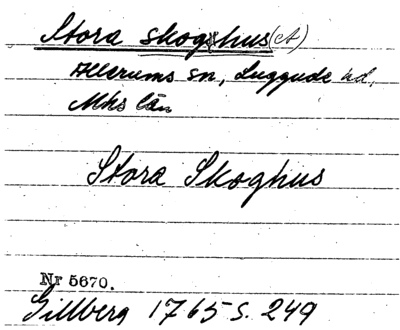 Stora skoghus (A)
Allerums sn, Luggude hd,
Mhs län
Stora Skoghus
Nr 5670.
Gillberg 1765 s. 249